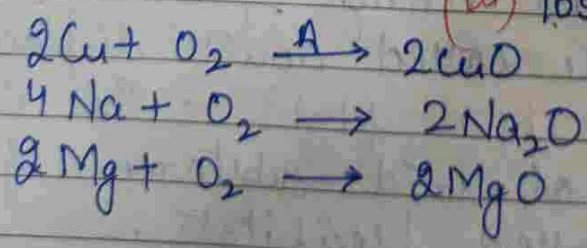 2Cu + O₂ —A→ 2CuO
4 Na + O₂ → 2Na₂O
2 Mg + O₂ → 2MgO